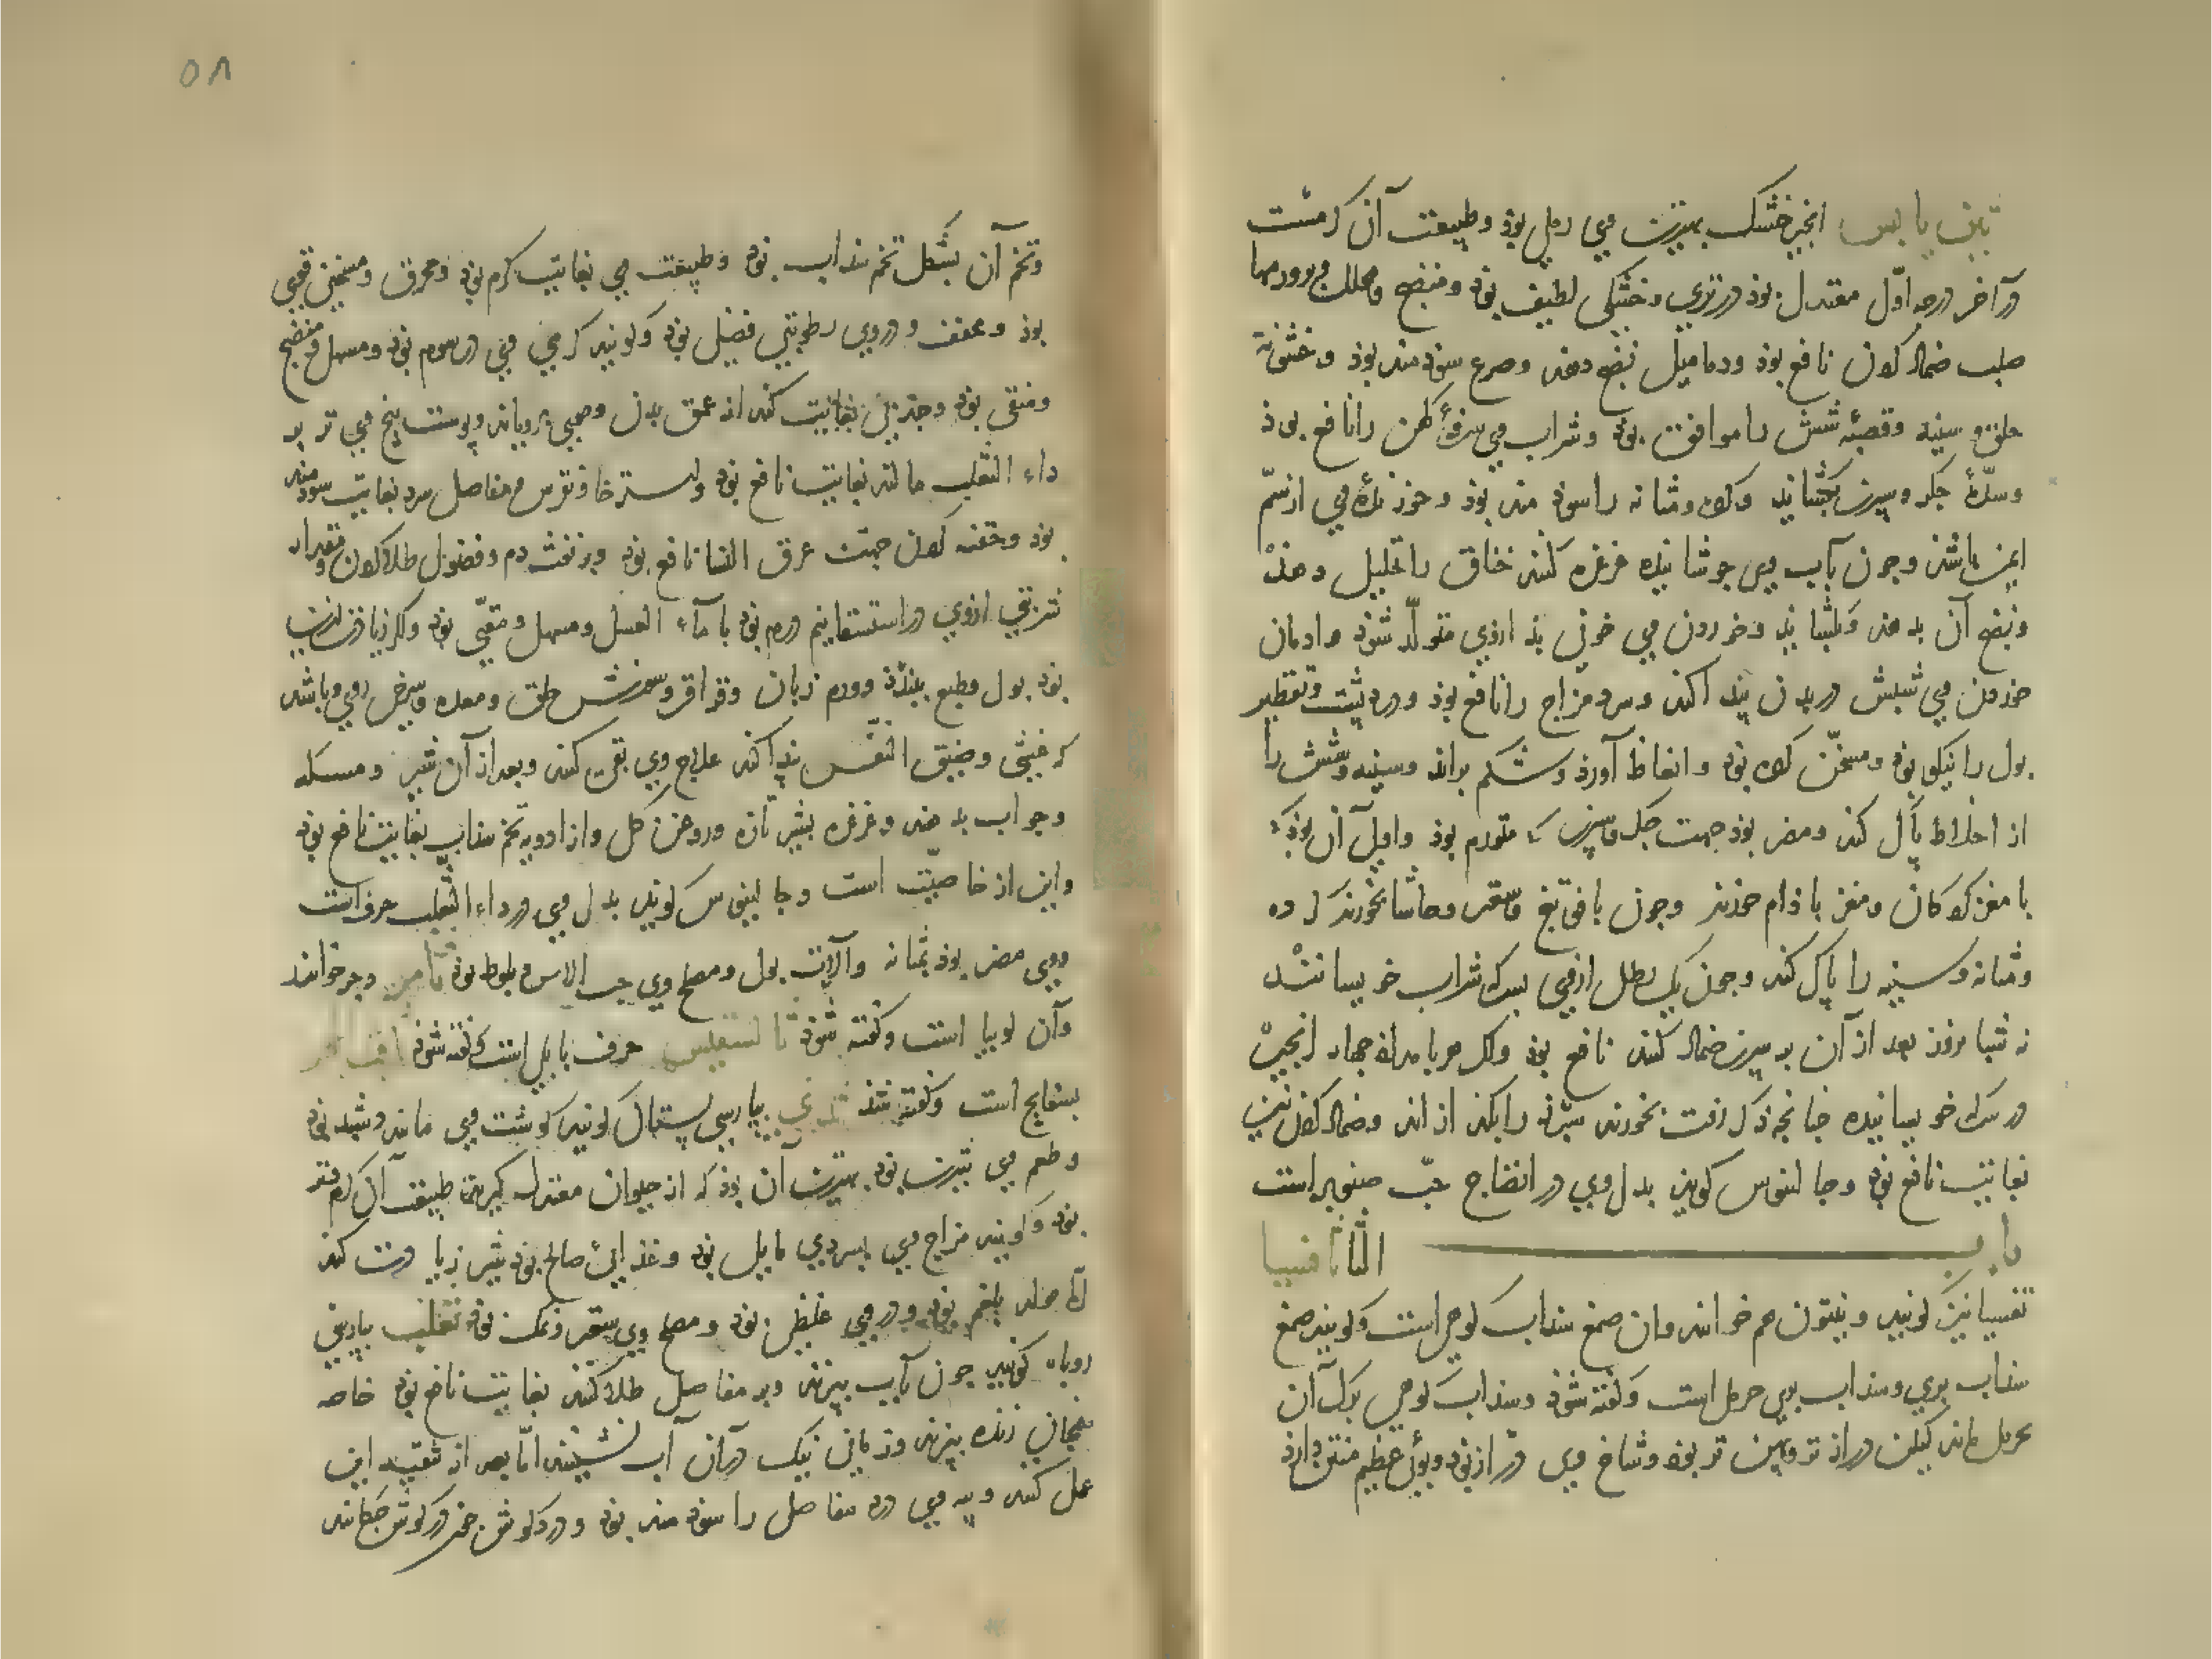 تین یابس انجیر خشک بهترین وی رملی بوذ وطبیعت آن کرمست
در آخر درجه اوّل معتدل بوذ در تری وخشکی لطیف بوذ ومنضج ومحلل بوذ ورمها
صلب ضماد کردن نافع بوذ ودمامیل نضج دهد وصرع سوذمند بوذ وخشونة
حلق و سینه وقصبه شش را موافق بوذ وشراب وی سرفهٔ کهن را نافع بوذ
وسدّهٔ جکر وسپرز بکشاید وکرده ومثانه را سوذ مند بوذ وخوذنده وی از سمّ
ایمن باشذ وچون بآب وی جوشانیده غرغره کنند خناق را تحلیل دهذ
ونضج آن بدهد وبکشاید وخوردن وی خونی بد ازوی متولّد شوذ وادمان
خوردن وی شپش در بدن پیدا کند وسرد مزاج را نافع بوذ ودرد پشت وتقطیر
بول را نیکو بوذ ومسخّن کرده بوذ وانعاظ آورد وشکم براند وسینه وشش را
از اخلاط پاک کند ومضر بوذ جهت جکر وسپرز که متورم بوذ واولی آن بوذ که
با مغز کردکان ومغز باذام خورند وچون با فوتنج وسعتر وحاشا بخورند کرده
ومثانه وسینه را پاک کند وچون یک رطل ازوی بسرکه شراب خویسانند
نه شبانروز بعد از آن بر سپرز ضماد کنند نافع بوذ واکر هر بامداد چهار انجیر
در سرکه خویسانیده چنانچه ذکر رفت بخورند سپرز را بکدازاند وضماد کردن نیز
بغایت نافع بوذ وجالینوس کویذ بدل وی در انضاج حبّ صنوبر است
باب الثا ثافسیا
تفسیا نیز کویند وینتون هم خوانند وآن صمغ سداب کوهی است وکویند صمغ
سداب بری وسداب بری حرمل است وکفته شوذ وسداب کوهی برک آن
بحرمل ماند لیکن دراز تر وپهن تر بوذ وشاخ وی دراز بوذ وبوئی عظیم منتن دارد
۵۸
وتخم آن بشکل تخم سداب بوذ وطبیعت وی بغایت کرم بوذ ومحرق ومسخن قوی
بوذ ومجفف ودر وی رطوبتی فضلی بوذ وکویند کرمی وی در سوم بوذ ومسهل ومنضج
ومنقی بوذ وجذب بغایت کند از عمق بدن وموی برویاند وپوست بیخ وی تر بر
داء الثعلب مالند بغایت نافع بوذ واسترخا ونقرس ومفاصل سرد بغایت سودمند
بوذ وحقنه کردن جهت عرق النسا نافع بوذ وبر نفث دم وفضول طلا کردن ومقدار
شربتی ازوی در استسقا نیم درم بوذ با مآء العسل ومسهل ومقیّی بوذ واکر زیادت ازین
بوذ بول وطبع ببندد وورم زبان وقراقر وسوزش حلق ومعده وسرخی روی باشد
که غشی وضیق النفس پیدا کند علاج وی بقی کنند وبعد از آن شیر ومسکه
وجواب بدهند وغرغره بشیر تازه وروغن کل واز ادویه تخم سداب بغایت نافع بوذ
واین از خاصیّت است وجالینوس کویند بدل وی در داء الثعلب حرف است
ووی مضر بوذ بمثانه وآلات بول ومصلح وی حب الآس وبلوط بوذ ثامر وجر خوانند
وآن لوبیا است وکفته شوذ ثالسفیس حرف بابلی است وکفته شوذ
بسفایج است وکفته شد ثدی بپارسی پستان کویند کوشت وی مانند شیر بوذ
وطعم وی شیرین بوذ بهترین آن بوذ که از حیوان معتدل کیرند طبیعت آن کرم وتر
بوذ وکویند مزاج وی بسردی مایل بوذ وغذایی صالح بوذ شیر زیادت کند
امّا مولد بلغم بوذ ودر وی غلظی بوذ ومصلح وی سعتر ونمک بوذ ثعلب بپارسی
روباه کویند چون بآب بپزند وبر مفاصل طلا کنند بغایت نافع بوذ خاصه
همچنان زنده بپزند وزمانی نیک در آن آب نشینند امّا بعد از تنقیه این
عمل کنند وپیه وی درد مفاصل را سوذ مند بوذ ودرد کوش چون در کوش چکانند